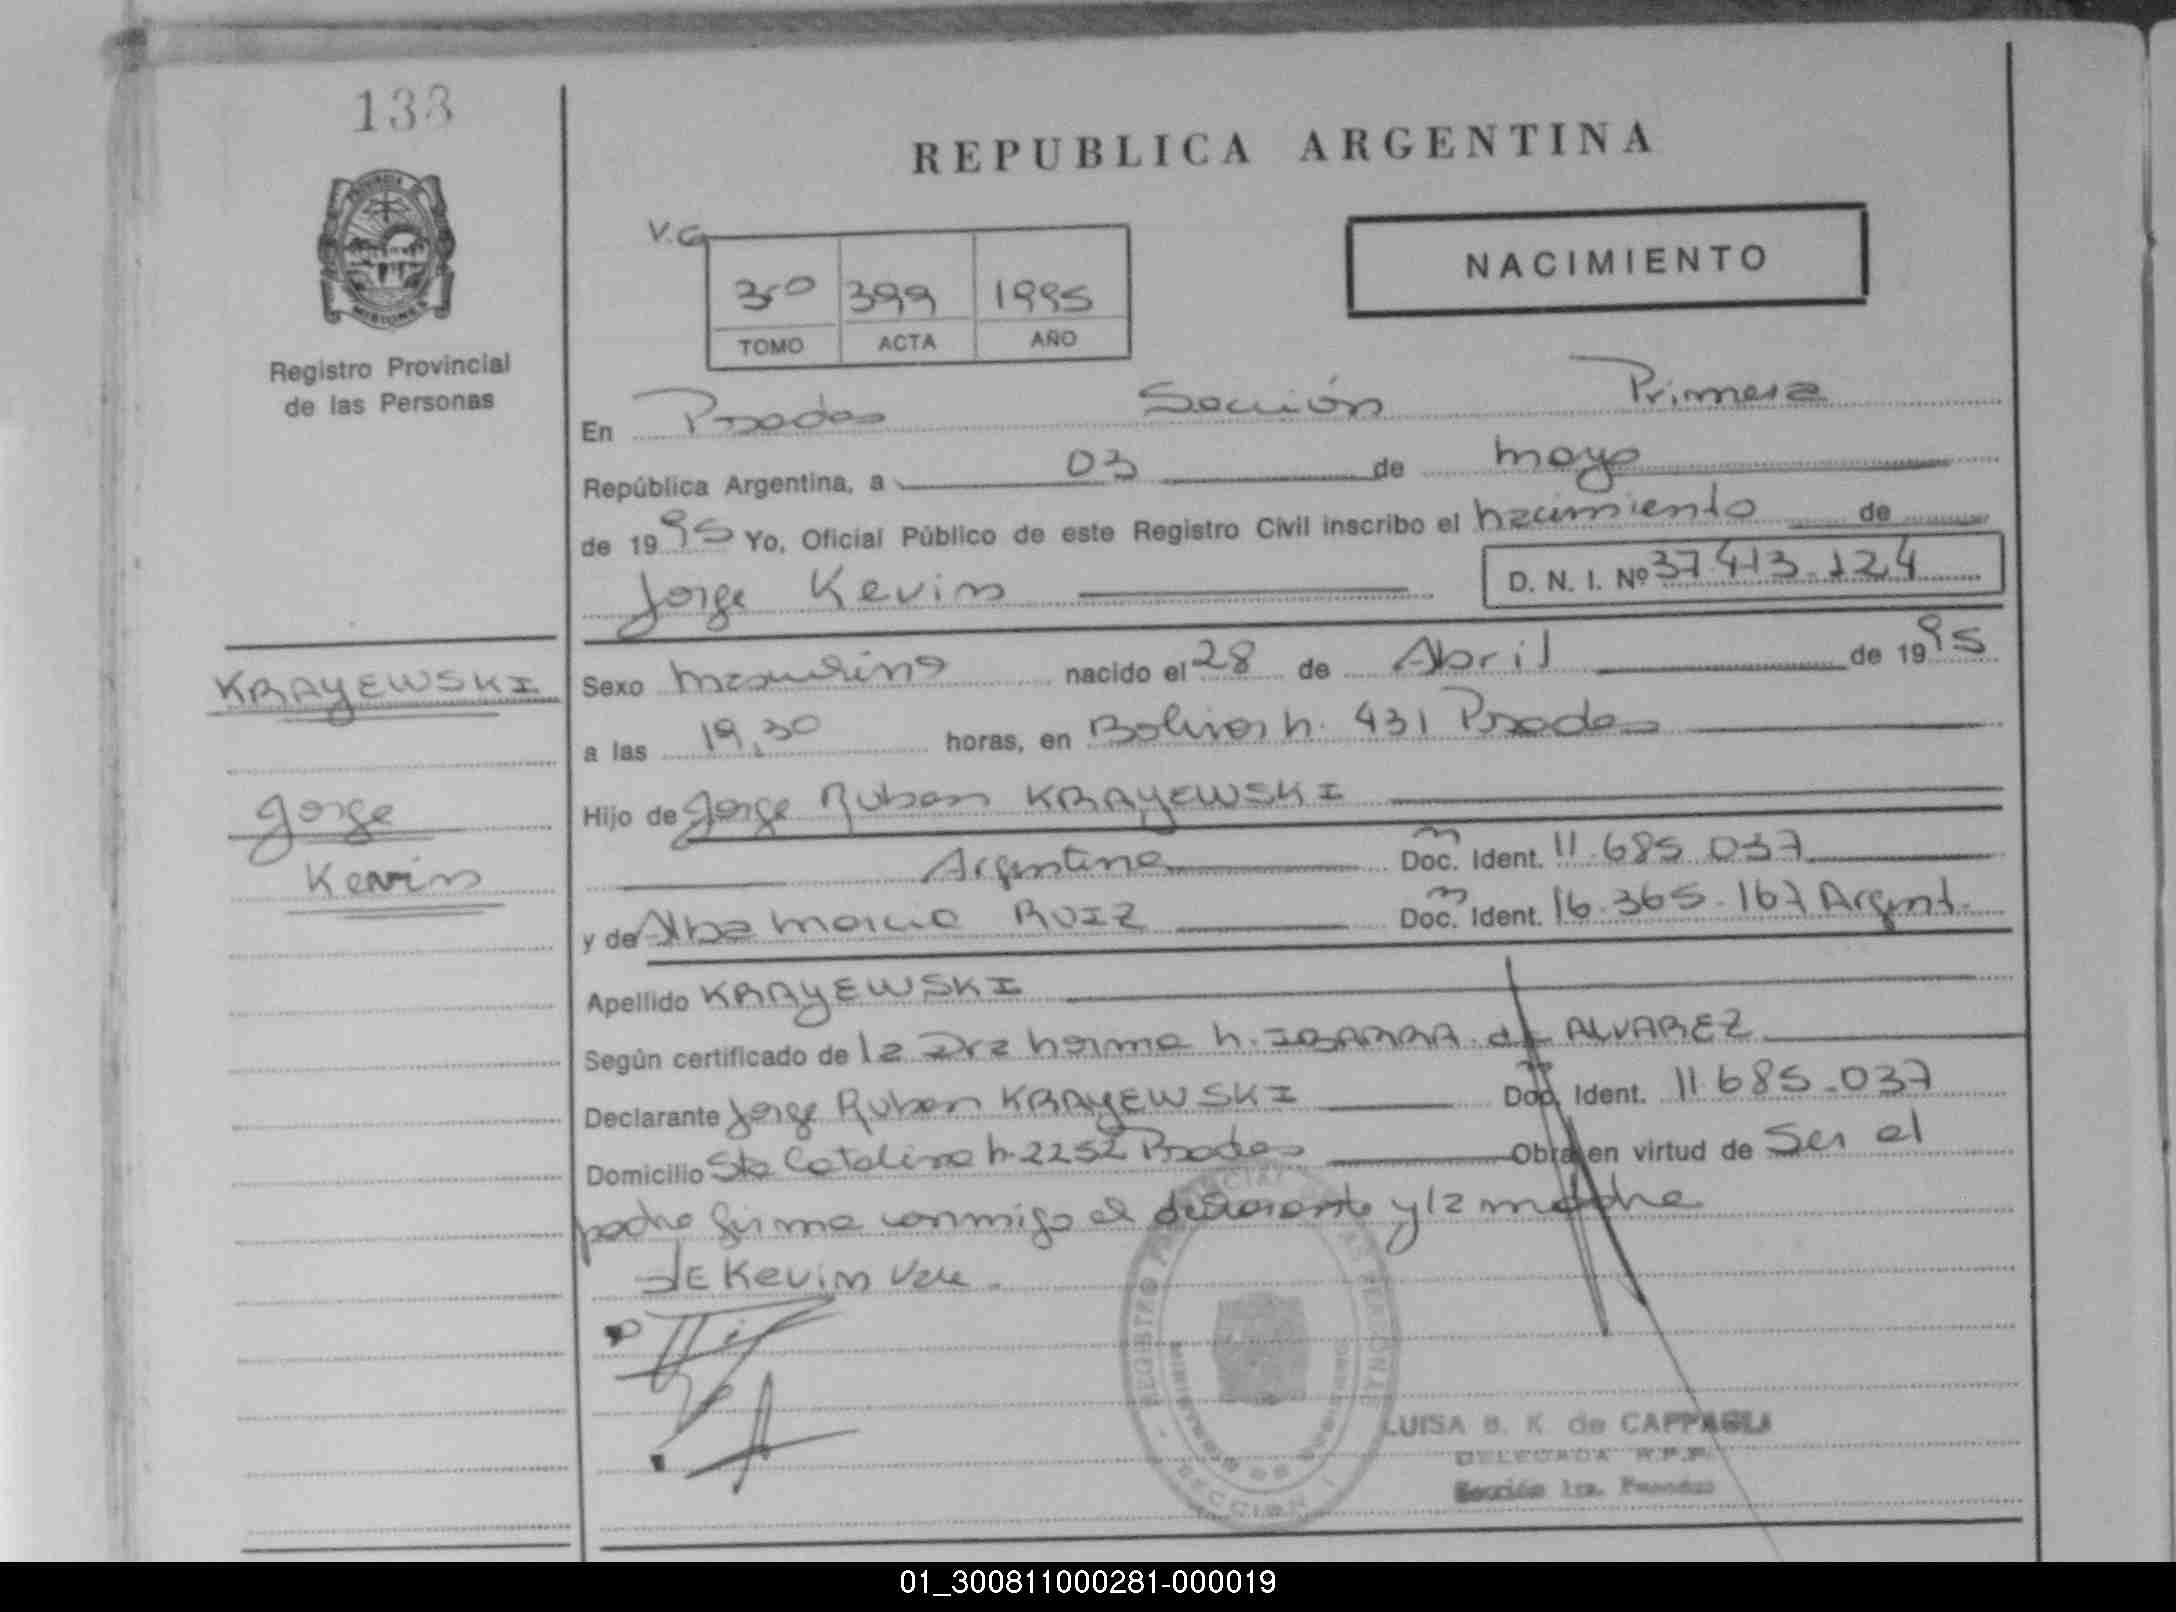 133
REPUBLICA ARGENTINA
V.G
3ro 399 1995
TOMO ACTA AÑO
NACIMIENTO
MISIONES
Registro Provincial
de las Personas
En Psadas Sección Primera
República Argentina, a 03 de mayo
de 1995 Yo, Oficial Público de este Registro Civil inscribo el nacimiento de
Jorge Kevin D. N. I. Nº 37.413.124
KRAYEWSKI
Jorge
Kevin
Sexo masculino nacido el 28 de Abril de 1995
a las 19,30 horas, en Bolivar n. 431 Psadas
Hijo de Jorge Ruben KRAYEWSKI
Argentino Doc. Ident. 11.685.037
y de Alba maria RUIZ Doc. Ident. 16.365.167 Argent.
Apellido KRAYEWSKI
Según certificado de la Dra norma n. IBARRA de ALVAREZ
Declarante Jorge Ruben KRAYEWSKI Doc. Ident. 11.685.037
Domicilio Sta Catalina n. 2252 Psadas Obra en virtud de Ser el
padre firma conmigo el declarante y la madre
JE Kevin Vale.
LUISA B. K. de CAPPAGLI
DELEGADA R.P.P.
Sección 1ra. Posadas
01_300811000281-000019